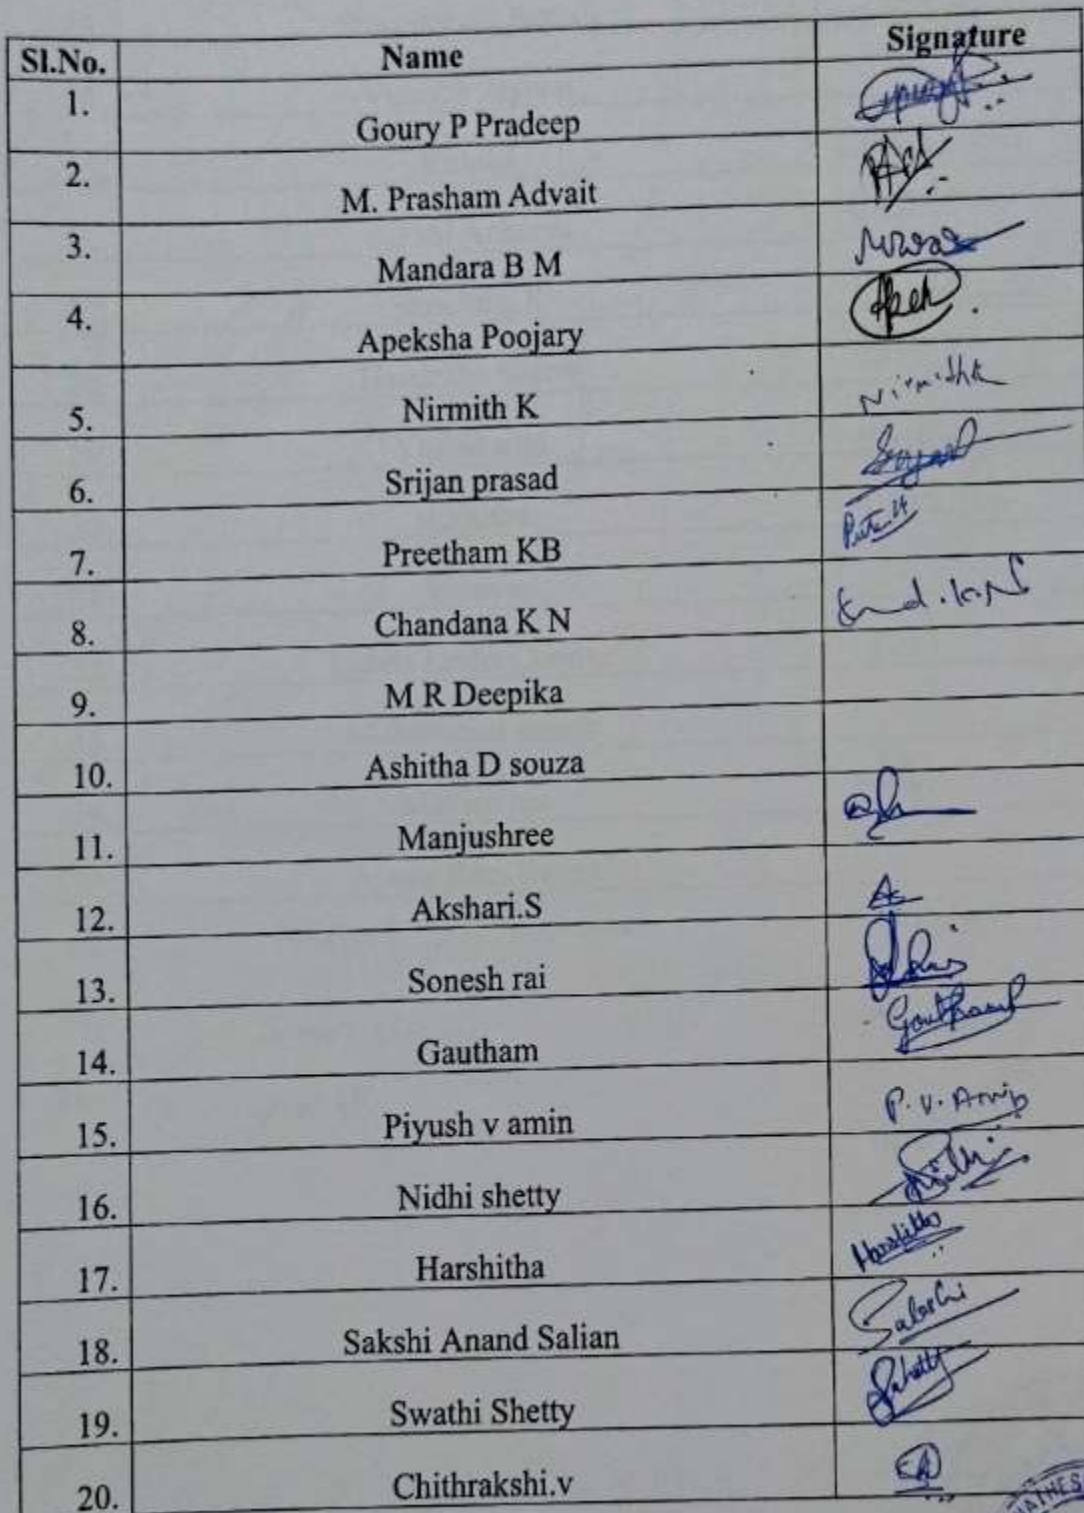 Sl.No. Name Signature
1. Goury P Pradeep
2. M. Prasham Advait
3. Mandara B M
4. Apeksha Poojary
5. Nirmith K Nirmithk
6. Srijan prasad
7. Preetham KB
8. Chandana K N
9. M R Deepika
10. Ashitha D souza
11. Manjushree
12. Akshari.S
13. Sonesh rai
14. Gautham
15. Piyush v amin P. V. Amin
16. Nidhi shetty
17. Harshitha
18. Sakshi Anand Salian
19. Swathi Shetty
20. Chithrakshi.v